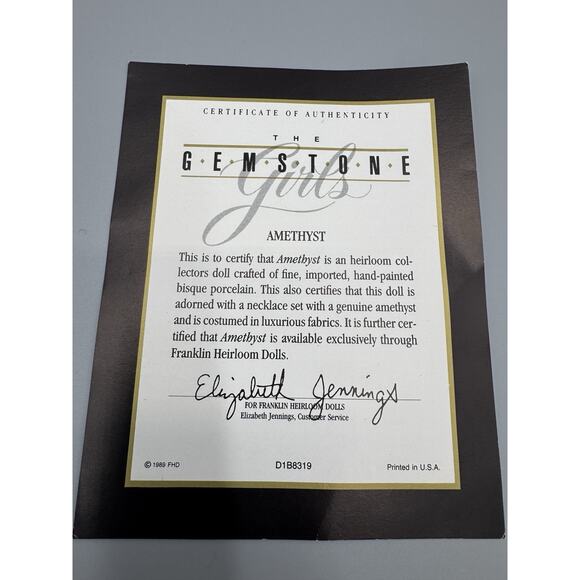 CERTIFICATE OF AUTHENTICITY
THE
GEMSTONE
Girls
AMETHYST
This is to certify that Amethyst is an heirloom col-
lectors doll crafted of fine, imported, hand-painted
bisque porcelain. This also certifies that this doll is
adorned with a necklace set with a genuine amethyst
and is costumed in luxurious fabrics. It is further cer-
tified that Amethyst is available exclusively through
Franklin Heirloom Dolls.
Elizabeth Jennings
FOR FRANKLIN HEIRLOOM DOLLS
Elizabeth Jennings, Customer Service
© 1989 FHD
D1B8319
Printed in U.S.A.